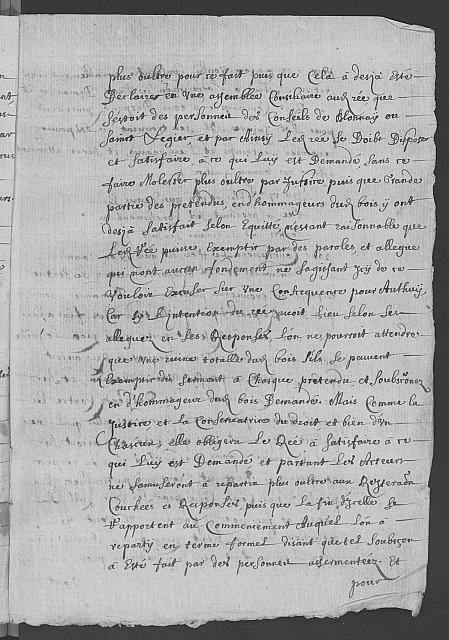 plus oultre pour ce fait puis que Cela à desja Esté
Declairez en une assemblée Consiliaire aud. rée que
C'estoit des personnes des Conseils de Blonnay ou
Sainct Legier, et par Ainsy Led. rée se Doibt Disposer
et Satisfaire, à ce qui Luÿ est Demandé sans ce
faire Molester plus oultre par Justice, puis que Grande
partie des pretendus, endhommageurs dud. bois, ÿ ont
desja Satisfait Selon Equité, n'estant raisonnable que
Led. Rée puisse Exempter par des paroles, et allegue
qui n'ont aucun fondement ne sagissant Icÿ de ce
Vouloir Excuser sur une Consequence pour Authruÿ,
Car sÿ L'intention du rée avoit lieu selon ses
allegue en ses Responses, L'on ne pourroit attendre
que une ruine totalle dud. bois sils se peuvent
Exempter du serment à Chasque pretendu et soubçonez
en d'hommageur dud. bois Demandé. Mais Comme la
Justice et la Conservatrice du droit et bien d'vn
Chascun, elle obligera Le Rée à Satisfaire à ce
qui Luÿ est Demandé et partant Les Acteurs
ne samuseront à repartir plus oultre aux
Couchées et Responses, puis que la fin d'Icelle se
rapportent au Commencement Auquel L'on à
repartÿ en terme formel disant que tel soubçon
à Esté fait par des personnes assermentéez. Et
pour